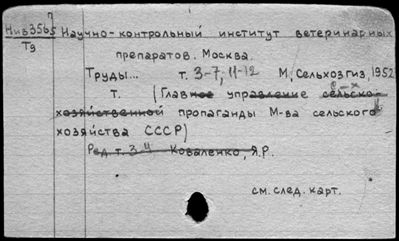 Нив3565 Научно-контрольный институт ветеринарных
Т9
препаратов. Москва.
Труды... т. 3-7, 11-12 М, Сельхозгиз, 1952
Т. (Главное управление сельско-
хозяйственной пропаганды М-ва сельского
хозяйства СССР)
Ред. т. 3-4 Коваленко, Я.Р.
см. след. карт.